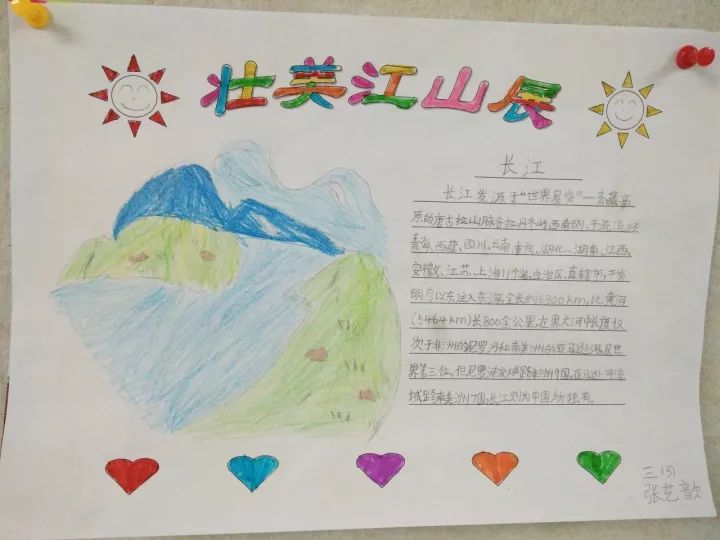 壮美江山展
长江
长江发源于“世界屋脊”—青藏高
原的唐古拉山脉各拉丹冬峰西南侧,干流流经
青海、西藏、四川、云南、重庆、湖北、湖南、江西、
安徽、江苏、上海11个省、自治区、直辖市,于崇
明岛以东注入东海,全长约6300km,比黄河
(5464km)长800余公里,在世界大河中长度仅
次于非洲的尼罗河和南美洲的亚马逊河,居世
界第三位。但尼罗河流域跨非洲9国,亚马逊河流
域跨南美洲7国,长江则为中国所独有。
三(3)
张艺歆